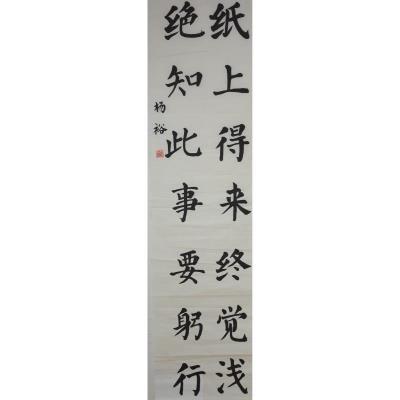 纸上得来终觉浅
绝知此事要躬行
杨裕